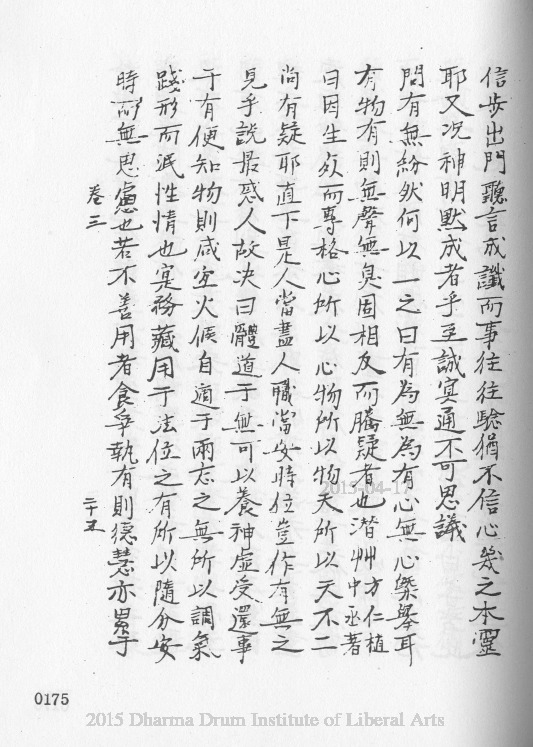 信步出門聽言成讖而事往往驗猶不信心幾之本靈
耶又況神明默成者乎至誠冥通不可思議
問有無紛然何以一之曰有為無為有心無心槩舉耳
有物有則無聲無臭固相反而騰疑者也潛艸方仁植中丞著
曰因生於而專格心所以心物所以物天所以天不二
尚有疑耶直下是人當盡人職當安時位豈作有無之
見乎說最惑人故決曰體道于無可以養神虛受還事
于有便知物則咸宜火候自適于兩忘之無所以調氣
踐形而泯性情也寔務藏用于法位之有所以隨分安
時而無思慮也若不善用者食爭執有則德慧亦累于
卷三
二十五
0175
2015-04-17
2015 Dharma Drum Institute of Liberal Arts